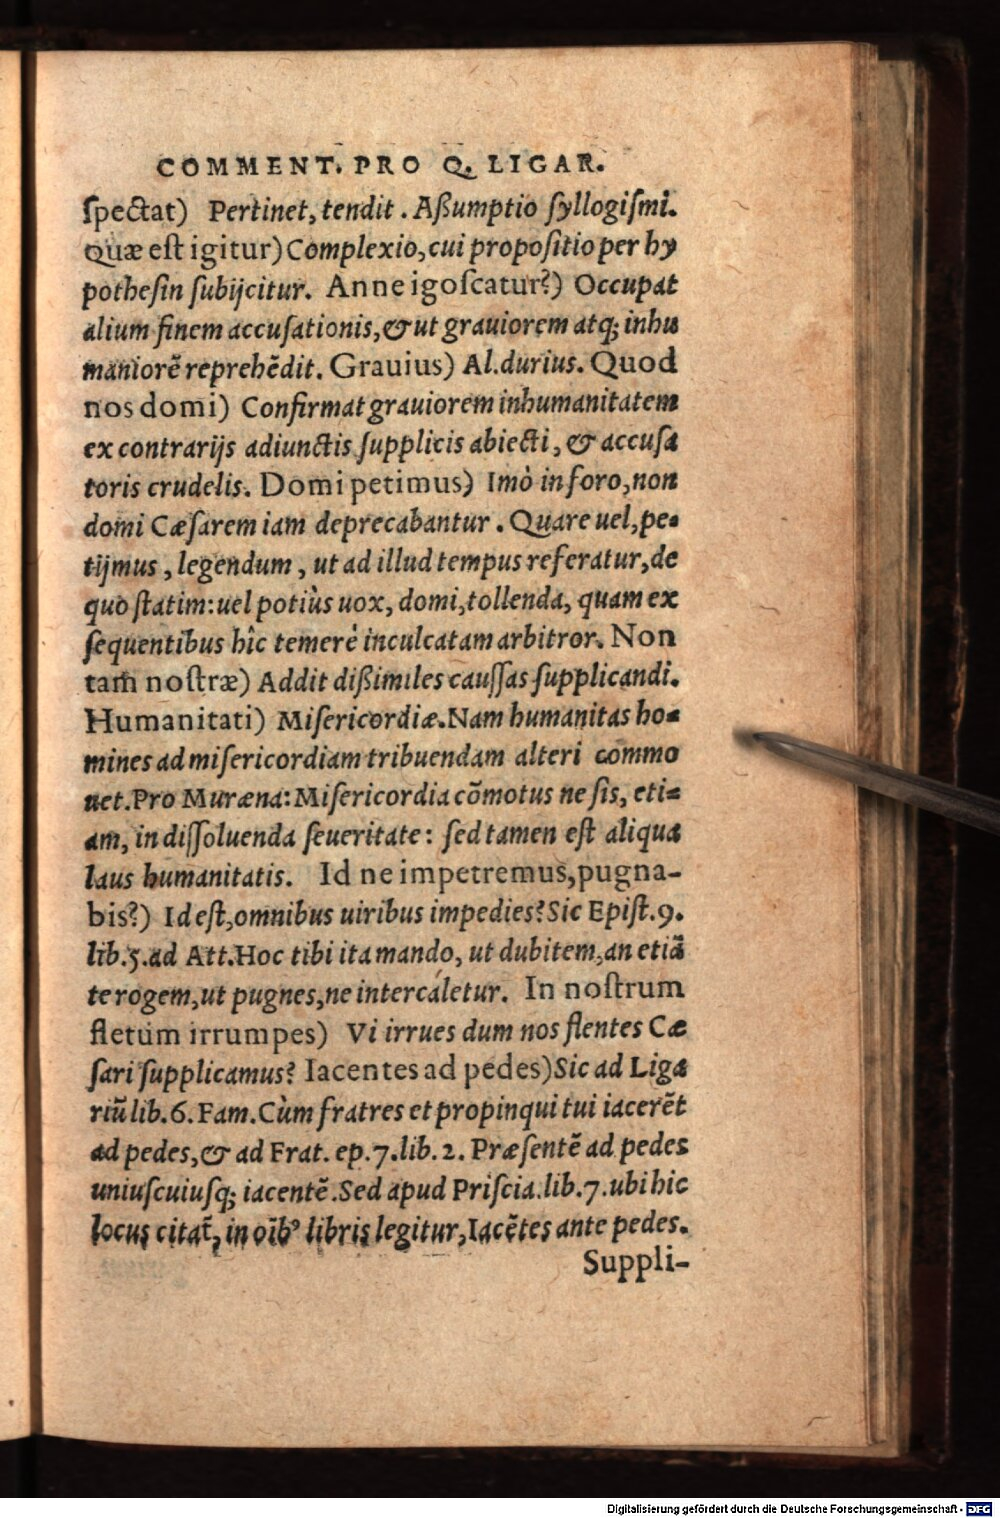 COMMENT. PRO Q. LIGAR.
ſpectat) Pertinet, tendit. Aßumptio ſyllogiſmi.
Quæ eſt igitur) Complexio, cui propoſitio per hy
potheſin ſubijcitur. An ne igoſcatur?) Occupat
alium finem accuſationis, & ut grauiorem atq; inhu
maniorē reprehēdit. Grauius) Al. durius. Quod
nos domi) Confirmat grauiorem inhumanitatem
ex contrarijs adiunctis ſupplicis abiecti, & accuſa
toris crudelis. Domi petimus) Imò in foro, non
domi Cæſarem iam deprecabantur. Quare uel, pe-
tijmus, legendum, ut ad illud tempus referatur, de
quo ſtatim: uel potiùs uox, domi, tollenda, quam ex
ſequentibus hîc temerè inculcatam arbitror. Non
tam noſtræ) Addit dißimiles cauſſas ſupplicandi.
Humanitati) Miſericordiæ. Nam humanitas ho-
mines ad miſericordiam tribuendam alteri commo
uet. Pro Muræna: Miſericordia cōmotus ne ſis, eti-
am, in diſſoluenda ſeueritate: ſed tamen eſt aliqua
laus humanitatis. Id ne impetremus, pugna-
bis?) Id eſt, omnibus uiribus impedies? Sic Epiſt. 9.
lib. 5. ad Att. Hoc tibi ita mando, ut dubitem, an etiā
te rogem, ut pugnes, ne intercáletur. In noſtrum
fletum irrumpes) Vi irrues dum nos flentes Cæ
ſari ſupplicamus? Iacentes ad pedes) Sic ad Liga
riū lib. 6. Fam. Cùm fratres et propinqui tui iacerēt
ad pedes, & ad Frat. ep. 7. lib. 2. Præſentē ad pedes
uniuſcuiuſq; iacentē. Sed apud Priſcia. lib. 7. ubi hic
locus citat̄, in oīb⁹ libris legitur, Iacētes ante pedes.
Suppli-
Digitalisierung gefördert durch die Deutsche Forschungsgemeinschaft - DFG